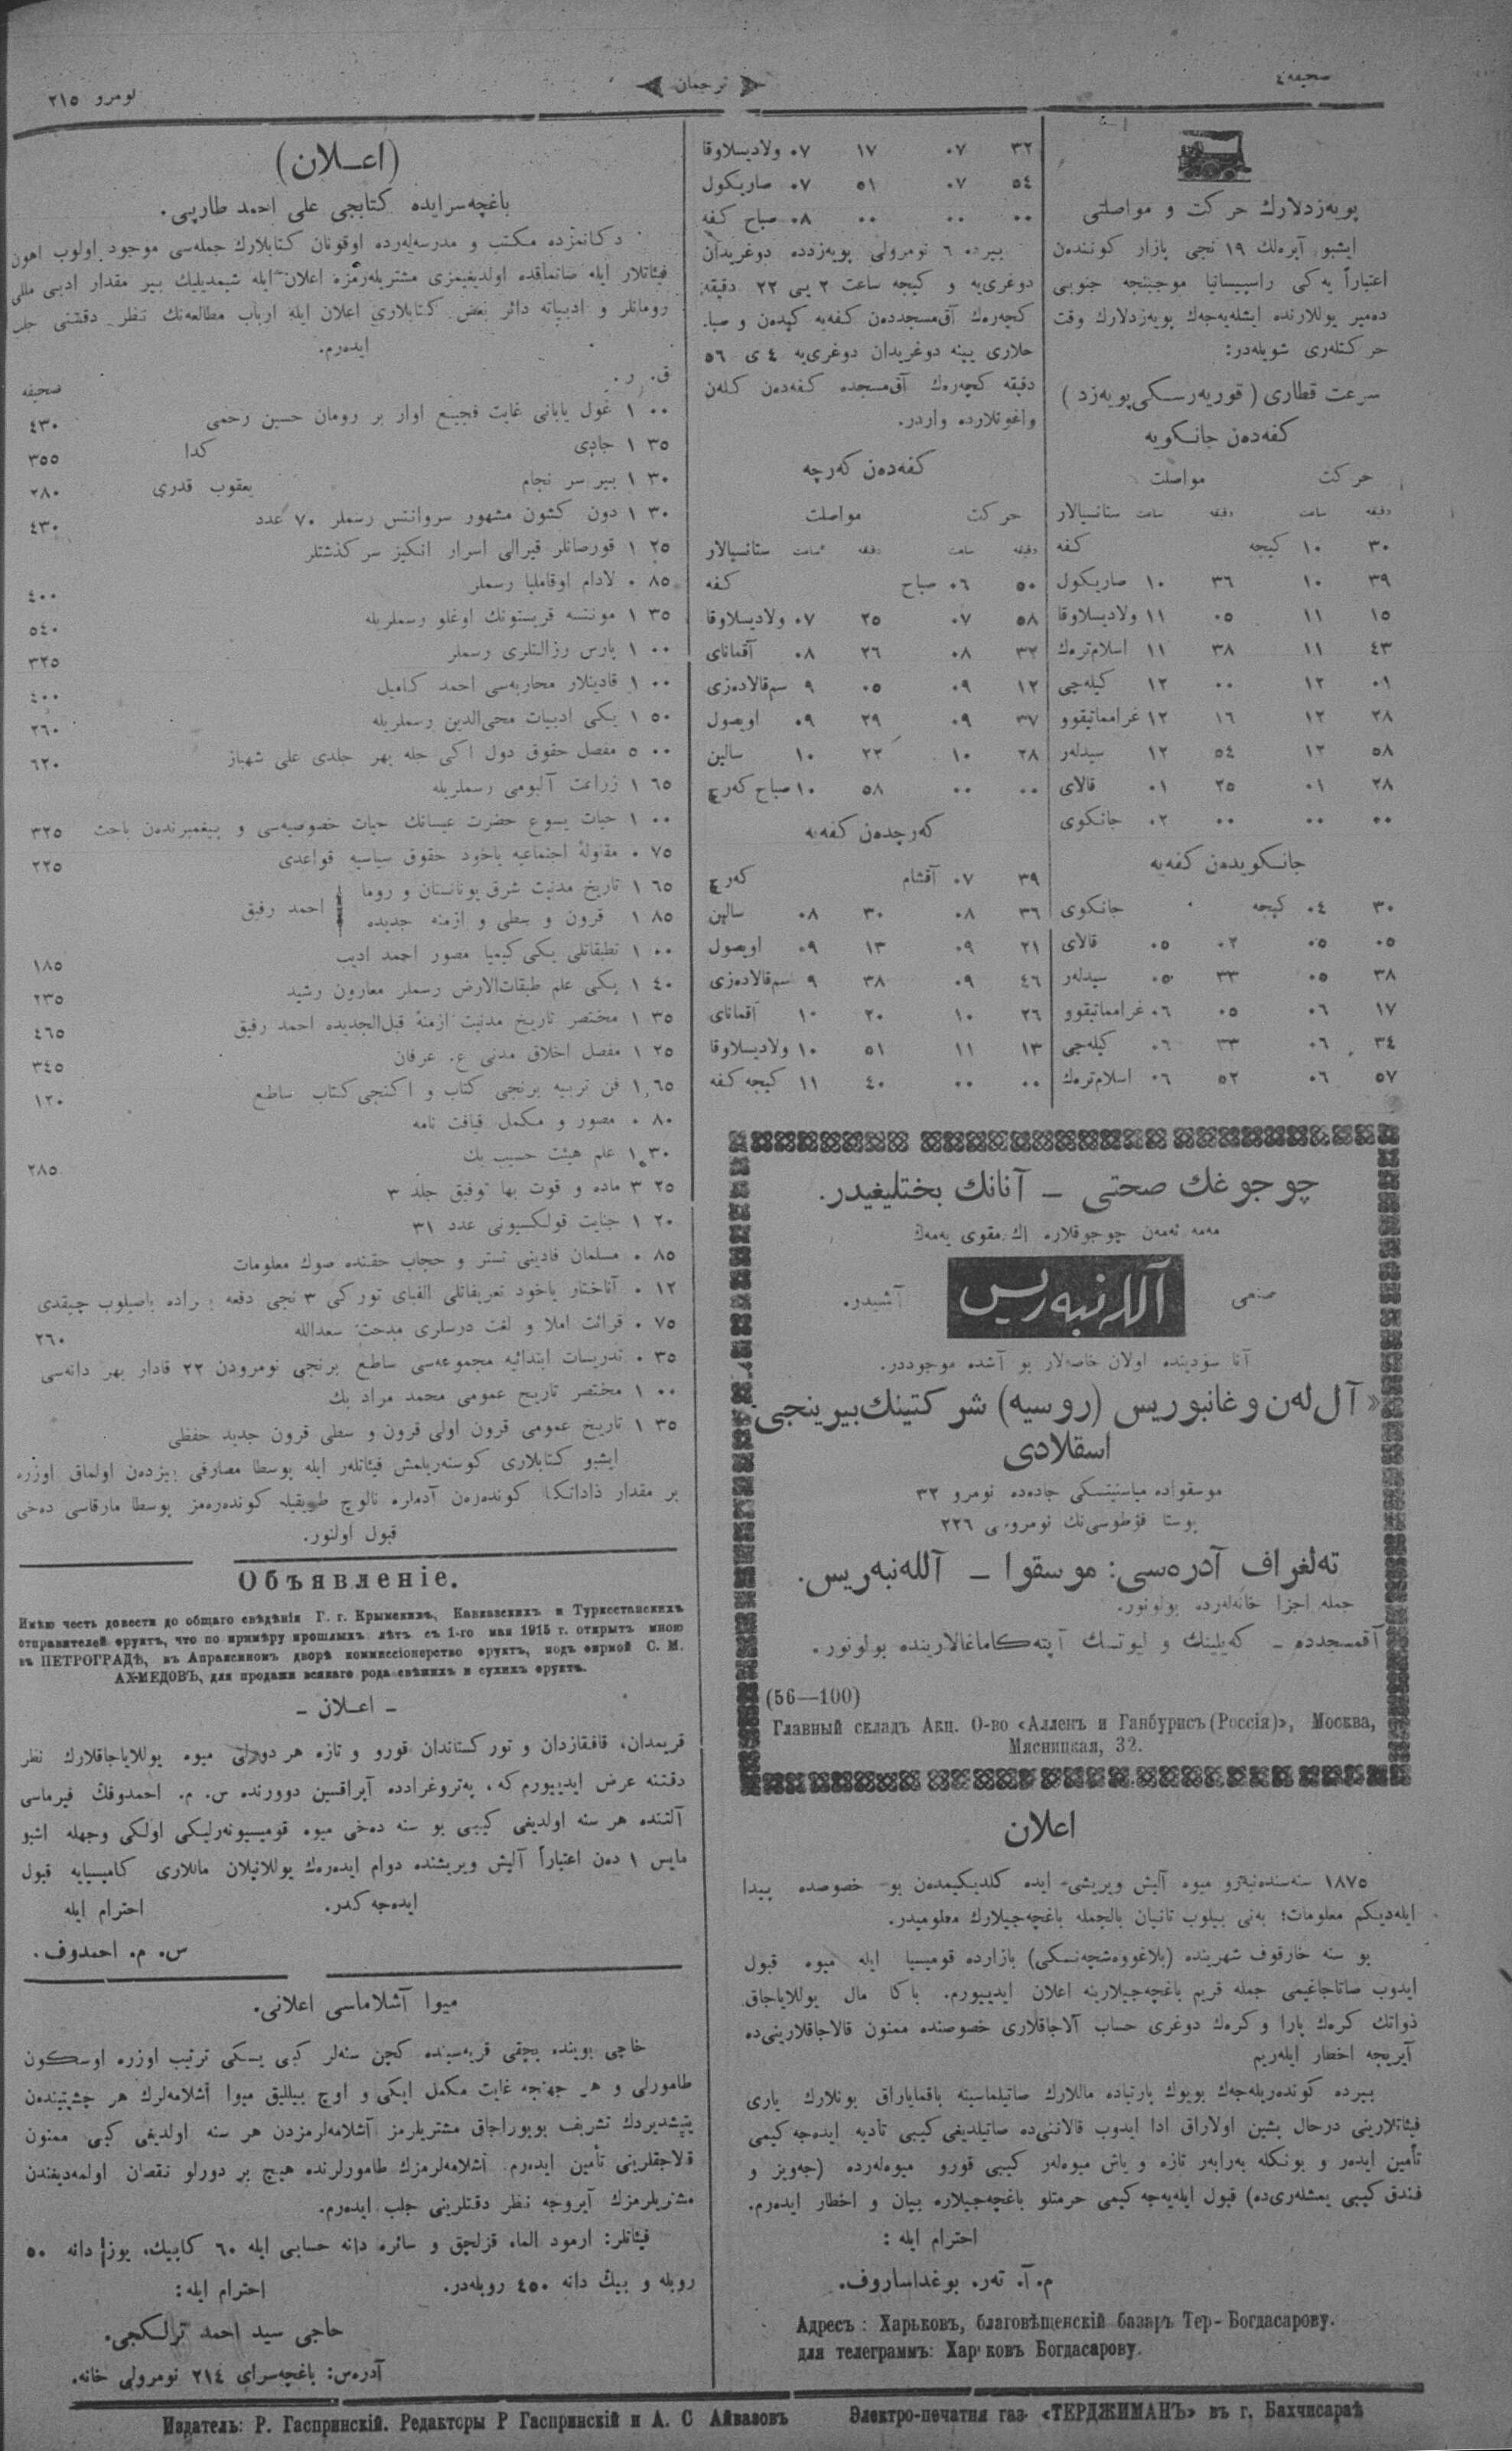 صحیفه ٤
ترجمان
نومرو ٢١٥
پویه‌زدلارك حركت و مواصلتی
ایشبو آیره‌لك ١٩ نجی بازار كونندەن
دەمیر یوللارنده ایشله‌یه‌جەك پویه‌زدلارك وقت
حركتلەری شویله‌در:
سرعت قطاری (قوریه‌رسكی پویه‌زد)
كفه‌دەن جانكویه
حركت مواصلت
دقیقه ساعت دقیقه ساعت ستانسیالار
٣٠ ١٠ كیجه كفه
٣٩ ١٠ ٣٦ ١٠ صاریكول
١٥ ١١ ٠٥ ١١ ولادیسلاوقا
٤٣ ١١ ٣٨ ١١ اسلام‌ترەك
٠١ ١٢ ٠٠ ١٢ كیله‌چی
٢٨ ١٢ ١٦ ١٢ غرامماتیقوو
٥٨ ١٢ ٥٤ ١٢ سیدلەر
٢٨ ٠١ ٢٥ ٠١ قالای
٠٠ ٠٠ ٠٠ ٠٢ جانكوی
جانكویدەن كفه‌یه
٣٠ ٠٤ كیجه جانكوی
٠٥ ٠٥ ٠٢ ٠٥ قالای
٣٨ ٠٥ ٣٣ ٠٥ سیدلەر
١٧ ٠٦ ٠٥ ٠٦ غرامماتیقوو
٣٤ ٠٦ ٣٣ ٠٦ كیله‌چی
٥٧ ٠٦ ٥٢ ٠٦ اسلام‌ترەك
٣٢ ٠٧ ١٧ ٠٧ ولادیسلاوقا
٥٤ ٠٧ ٥١ ٠٧ صاریكول
٠٠ ٠٠ ٠٠ ٠٨ صباح كفه
بیردە ٦ نومرولی پویه‌زدده دوغریدان
دوغری‌یه و كیجه ساعت ٢ یی ٢٢ دقیقه
كچه‌رەك آق‌مسجددەن كفه‌یه كیدەن و صبا‌
حلاری یینه دوغریدان دوغری‌یه ٤ ی ٥٦
دقیقه كچه‌رەك آق‌مسجده كفه‌دەن كلەن
واغونلارده واردر.
كفه‌دەن كه‌رچه
حركت مواصلت
دقیقه ساعت دقیقه ساعت ستانسیالار
٥٠ ٠٦ صباح كفه
٥٨ ٠٧ ٢٥ ٠٧ ولادیسلاوقا
٣٢ ٠٨ ٢٦ ٠٨ آقمانای
١٢ ٠٩ ٠٥ ٩ سم‌قالادەزی
٣٧ ٠٩ ٢٩ ٠٩ اویصول
٢٨ ١٠ ٢٢ ١٠ سالین
٠٠ ٠٠ ٥٨ ١٠ صباح كه‌رچ
كه‌رچدەن كفه‌یه
٣٩ ٠٧ آقشام كه‌رچ
٣٦ ٠٨ ٣٠ ٠٨ سالین
٢١ ٠٩ ١٣ ٠٩ اویصول
٤٦ ٠٩ ٣٨ ٩ سم‌قالادەزی
٢٦ ١٠ ٢٠ ١٠ آقمانای
١٣ ١١ ٥١ ١٠ ولادیسلاوقا
٠٠ ٠٠ ٤٠ ١١ كیجه كفه
چوجوغك صحتی – آنانك بختلیغیدر.
مەمه ئەمەن چوجوقلاره اك مقوی یەمەك
صنعی آللەنبەریس آشیدر.
آنا سوديندە اولان خاصه‌لار بو آشده موجوددر.
«آل‌لەن و غانبوریس (روسیه) شركتینك بیرینجی
اسقلادی
موسقواده میاسنیتسكی جادەده نومرو ٣٢
تەلغراف آدرەسی: موسقوا – آللەنبەریس.
جمله اجزا خانه‌لەرده بولونور.
(56—100)
Главный складъ Акц. О-во «Алленъ и Ганбурисъ (Россія)», Москва,
Мясницкая, 32.
اعلان
١٨٧٥ سنه‌سندەنبەرو میوه آلیش ویریشی ایده كلدیكیمدەن بو خصوصده پیدا
ایله‌دیكم معلومات؛ بەنی بیلوب تانیان بالجمله باغچه‌جیلارك معلومیدر.
بو سنه خارقوف شهرینده (بلاغووەشچەنسكی) بازارده قومیسیا ایله میوه قبول
ایدوب صاتاجاغیمی جمله قریم باغچه‌جیلارینه اعلان ایدییورم. باكا مال یوللایاجاق
ذواتك كرەك پارا و كرەك دوغری حساب آلاجاقلاری خصوصنده ممنون قالاجاقلارینی‌ده
آیریجه اخطار ایلەریم
بیرده كوندەریله‌جەك بویوك پارتیاده ماللارك صاتیلماسینه باقمایاراق بونلارك یاری
فیئاتلارینی درحال پشین اولاراق ادا ایدوب قالاننی‌ده صاتیلدیغی كیبی تأدیه ایدەجه كیمی
تأمین ایدەر و بونكله بەرابەر تازه و یاش میوه‌لەر كیبی قورو میوه‌لەرده (جەویز و
فندق كیبی یمشلەری‌ده) قبول ایله‌یه‌جه كیمی حرمتلو باغچه‌جیلاره بیان و اخطار ایدەرم.
احترام ایله:
م. آ. تەر. بوغداساروف.
Адресъ: Харьковъ, благовѣщенскій базаръ Тер-Богдасарову.
для телеграммъ: Харьковъ Богдасарову.
(اعلان)
باغچه‌سرایده كتابجی علی احمد طارپی.
دكانمزده مكتب و مدرسه‌لەرده اوقونان كتابلارك جمله‌سی موجود اولوب اهون
فیئاتلار ایله صاتماقده اولدیغیمزی مشتریلەرمزه اعلان ایله شیمدیلیك بیر مقدار ادبی ملی
رومانلر و ادبیاته دائر بعض كتابلاری اعلان ایله ارباب مطالعه‌نك نظر دقتنی جلب
ایدەرم.
ق. ر. صحیفه
٠٠ ١ غول یابانی غایت فجیع اوار بر رومان حسین رحمی ٤٣٠
٣٥ ١ جادی كذا ٣٥٥
٣٠ ١ بیر سر نجام یعقوب قدری ٢٨٠
٣٠ ١ دون كشون مشهور سروانتس رسملر ٧٠ عدد ٤٣٠
٢٥ ١ قورصانلر قیرالی اسرار انكیز سركذشتلر
٨٥ ٠ لادام اوقاملیا رسملر ٤٠٠
٣٥ ١ مونتسه قریستونك اوغلو رسملریله ٥٤٠
٠٠ ١ پارس رزالتلری رسملر ٣٢٥
٠٠ ١ قادینلار محاربه‌سی احمد كامیل ٤٠٠
٥٠ ١ یكی ادبیات محی‌الدین رسملریله ٢٦٠
٠٠ ٥ مفصل حقوق دول اكی جلد بهر جلدی علی شهباز ٦٢٠
٦٥ ١ زراعت آلبومی رسملریله
٠٠ ١ حیات یسوع حضرت عیسانك حیات خصوصیه‌سی و پیغمبرندەن باحث ٣٢٥
٧٥ ٠ مقاوله‌ٔ اجتماعیه یاخود حقوق سیاسیه قواعدی ٢٢٥
٦٥ ١ تاریخ مدنیت شرق یونانستان و روما
٨٥ ١ قرون وسطی و ازمنه جدیده احمد رفیق
٠٠ ١ تطبقاتلی یكی كیمیا مصور احمد ادیب ١٨٥
٤٠ ١ یكی علم طبقات‌الارض رسملر معارون رشید ٢٣٥
٣٥ ١ مختصر تاریخ مدنیت ازمنهٔ قبل‌الجدیده احمد رفیق ٤٦٥
٢٥ ١ مفصل اخلاق مدنی ع. عرفان ٣٤٥
٦٥ ١ فن تربیه برنجی كتاب و اكنجی كتاب ساطع ١٢٠
٨٠ ٠ مصور و مكمل قیافت نامه
٣٠ ١ علم هیئت حسیب بك ٢٨٥
٢٥ ٣ ماده و قوت بها توفیق جلد ٣
٢٠ ١ جنایت قولكسیونی عدد ٣١
٨٥ ٠ مسلمان قادینی تستر و حجاب حقنده صوك معلومات
١٢ ٠ آناختار یاخود تعریفاتلی الفبای توركی ٣ نجی دفعه باصیلوب چیقدی
٧٥ ٠ قرائت املا و لغت درسلری مدحت سعدالله ٢٦٠
٣٥ ٠ تدریسات ابتدائیه مجموعه‌سی ساطع برنجی نومرودن ٢٢ قادار بهر دانه‌سی
٠٠ ١ مختصر تاریخ عمومی محمد مراد بك
٣٥ ١ تاریخ عمومی قرون اولی قرون وسطی قرون جدید حفظی
ایشبو كتابلاری كوسته‌ریلمش فیئاتلەر ایله پوسطا مصارفی بیزدەن اولماق اوزره
بر مقدار ذاداتكا كوندەرەن آدملره نالوچ طریقیله كوندەرەمز پوسطا مارقاسی دەخی
قبول اولنور.
Объявленіе.
Имѣю честь довести до общаго свѣдѣнія Г. г. Крымскихъ, Кавказскихъ и Туркестанскихъ
отправителей фруктъ, что по примѣру прошлыхъ лѣтъ съ 1-го мая 1915 г. открытъ мною
въ ПЕТРОГРАДѢ, въ Апраксиномъ дворѣ коммиссіонерство фруктъ, подъ фирмой С. М.
АХМЕДОВЪ, для продажи всякаго рода свѣжихъ и сухихъ фруктъ.
– اعلان –
قریمدان، قافقازدان و توركستاندان قورو و تازه هر دورلی میوه یوللایاجاقلارك نظر
دقتنه عرض ایدییورم كه، پەتروغرادده آپراقسین دوورنده س. م. احمدوفك فیرماسی
آلتنده هر سنه اولدیغی كیبی بو سنه دەخی میوه قومیسیونەرلیكی اولكی وجهله اشبو
مایس ١ دەن اعتباراً آلیش ویریشنده دوام ایدەرەك یوللانیلان ماللاری كامیسیایه قبول
ایدەجه كدر. احترام ایله
س. م. احمدوف.
میوا آشلاماسی اعلانی.
خاجی بوینده بچقی قریه‌سنده كچن سنه‌لر كبی یسكی ترتیب اوزره اوسكون
طامورلی و هر جهتجه غایت مكمل ایكی و اوچ ییللیق میوا آشلامه‌لرك هر چشیتیندەن
یتیشدیردك تشریف بویوراجاق مشتریلرمز آشلامه‌لرمزدن هر سنه اولدیغی كبی ممنون
قالاجقلرینی تأمین ایدەرم. آشلامه‌لرمزك طامورلرنده هیچ بر دورلو نقصان اولمه‌دیغندن
مشتریلرمزك آیروجه نظر دقتلرینی جلب ایدەرم.
فیئاتلر: ارمود الما، قزلجق و سائره دانه حسابی ایله ٦٠ كاپیك، یوز دانه ٥٠
روبله و بیك دانه ٤٥٠ روبله‌در. احترام ایله:
حاجی سید احمد ترلكجی.
آدرەس: باغچه‌سرای ٢١٤ نومرولی خانه.
Издатель: Р. Гаспринскій. Редакторы Р Гаспринскій и А. С Айвазовъ
Электро-печатня газ. «ТЕРДЖИМАНЪ» въ г. Бахчисараѣ